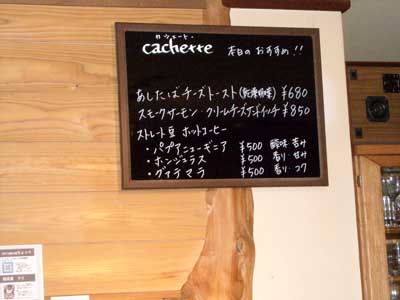 カシェート
cachette 本日の おすすめ!!
あしたばチーズトースト ¥680
スモークサーモン クリームチーズサンドイッチ ¥850
ストレート豆 ホットコーヒー
・パプアニューギニア ¥500 酸味 苦み
・ホンジュラス ¥500 香り・甘み
・グァテマラ ¥500 香り・コク